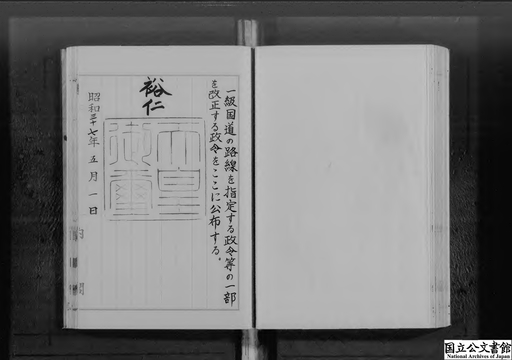 一級国道の路線を指定する政令等の一部
を改正する政令をここに公布する。
裕仁
天皇
御璽
昭和三十七年五月一日
国立公文書館
National Archives of Japan